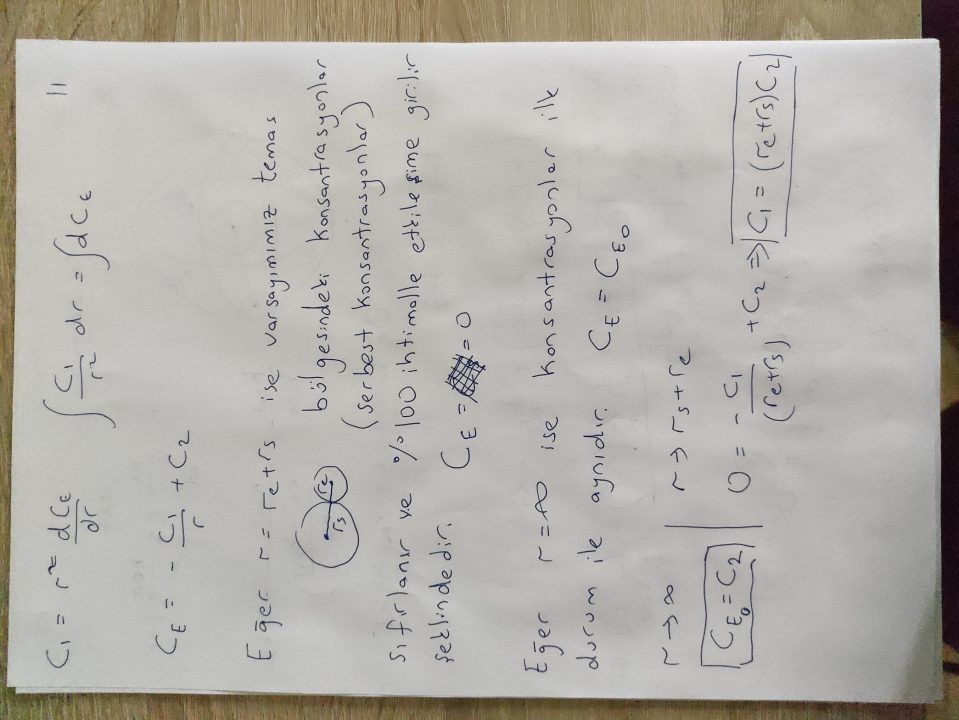 11
C₁ = r² dC_E/dr    ∫ C₁/r² dr = ∫dC_E
C_E = - C₁/r + C₂
Eğer r = r_e+r_s ise varsayımımız temas
bölgesindeki konsantrasyonlar
(serbest konsantrasyonlar)
r_s r_e
sıfırlanır ve %100 ihtimalle etkileşime girilir
şeklindedir. C_E = = 0
Eğer r = ∞ ise konsantrasyonlar ilk
durum ile aynıdır. C_E = C_E₀
r → ∞ | r → r_s + r_e
C_E₀ = C₂ | 0 = - C₁/(r_e+r_s) + C₂ ⇒ C₁ = (r_e+r_s)C₂